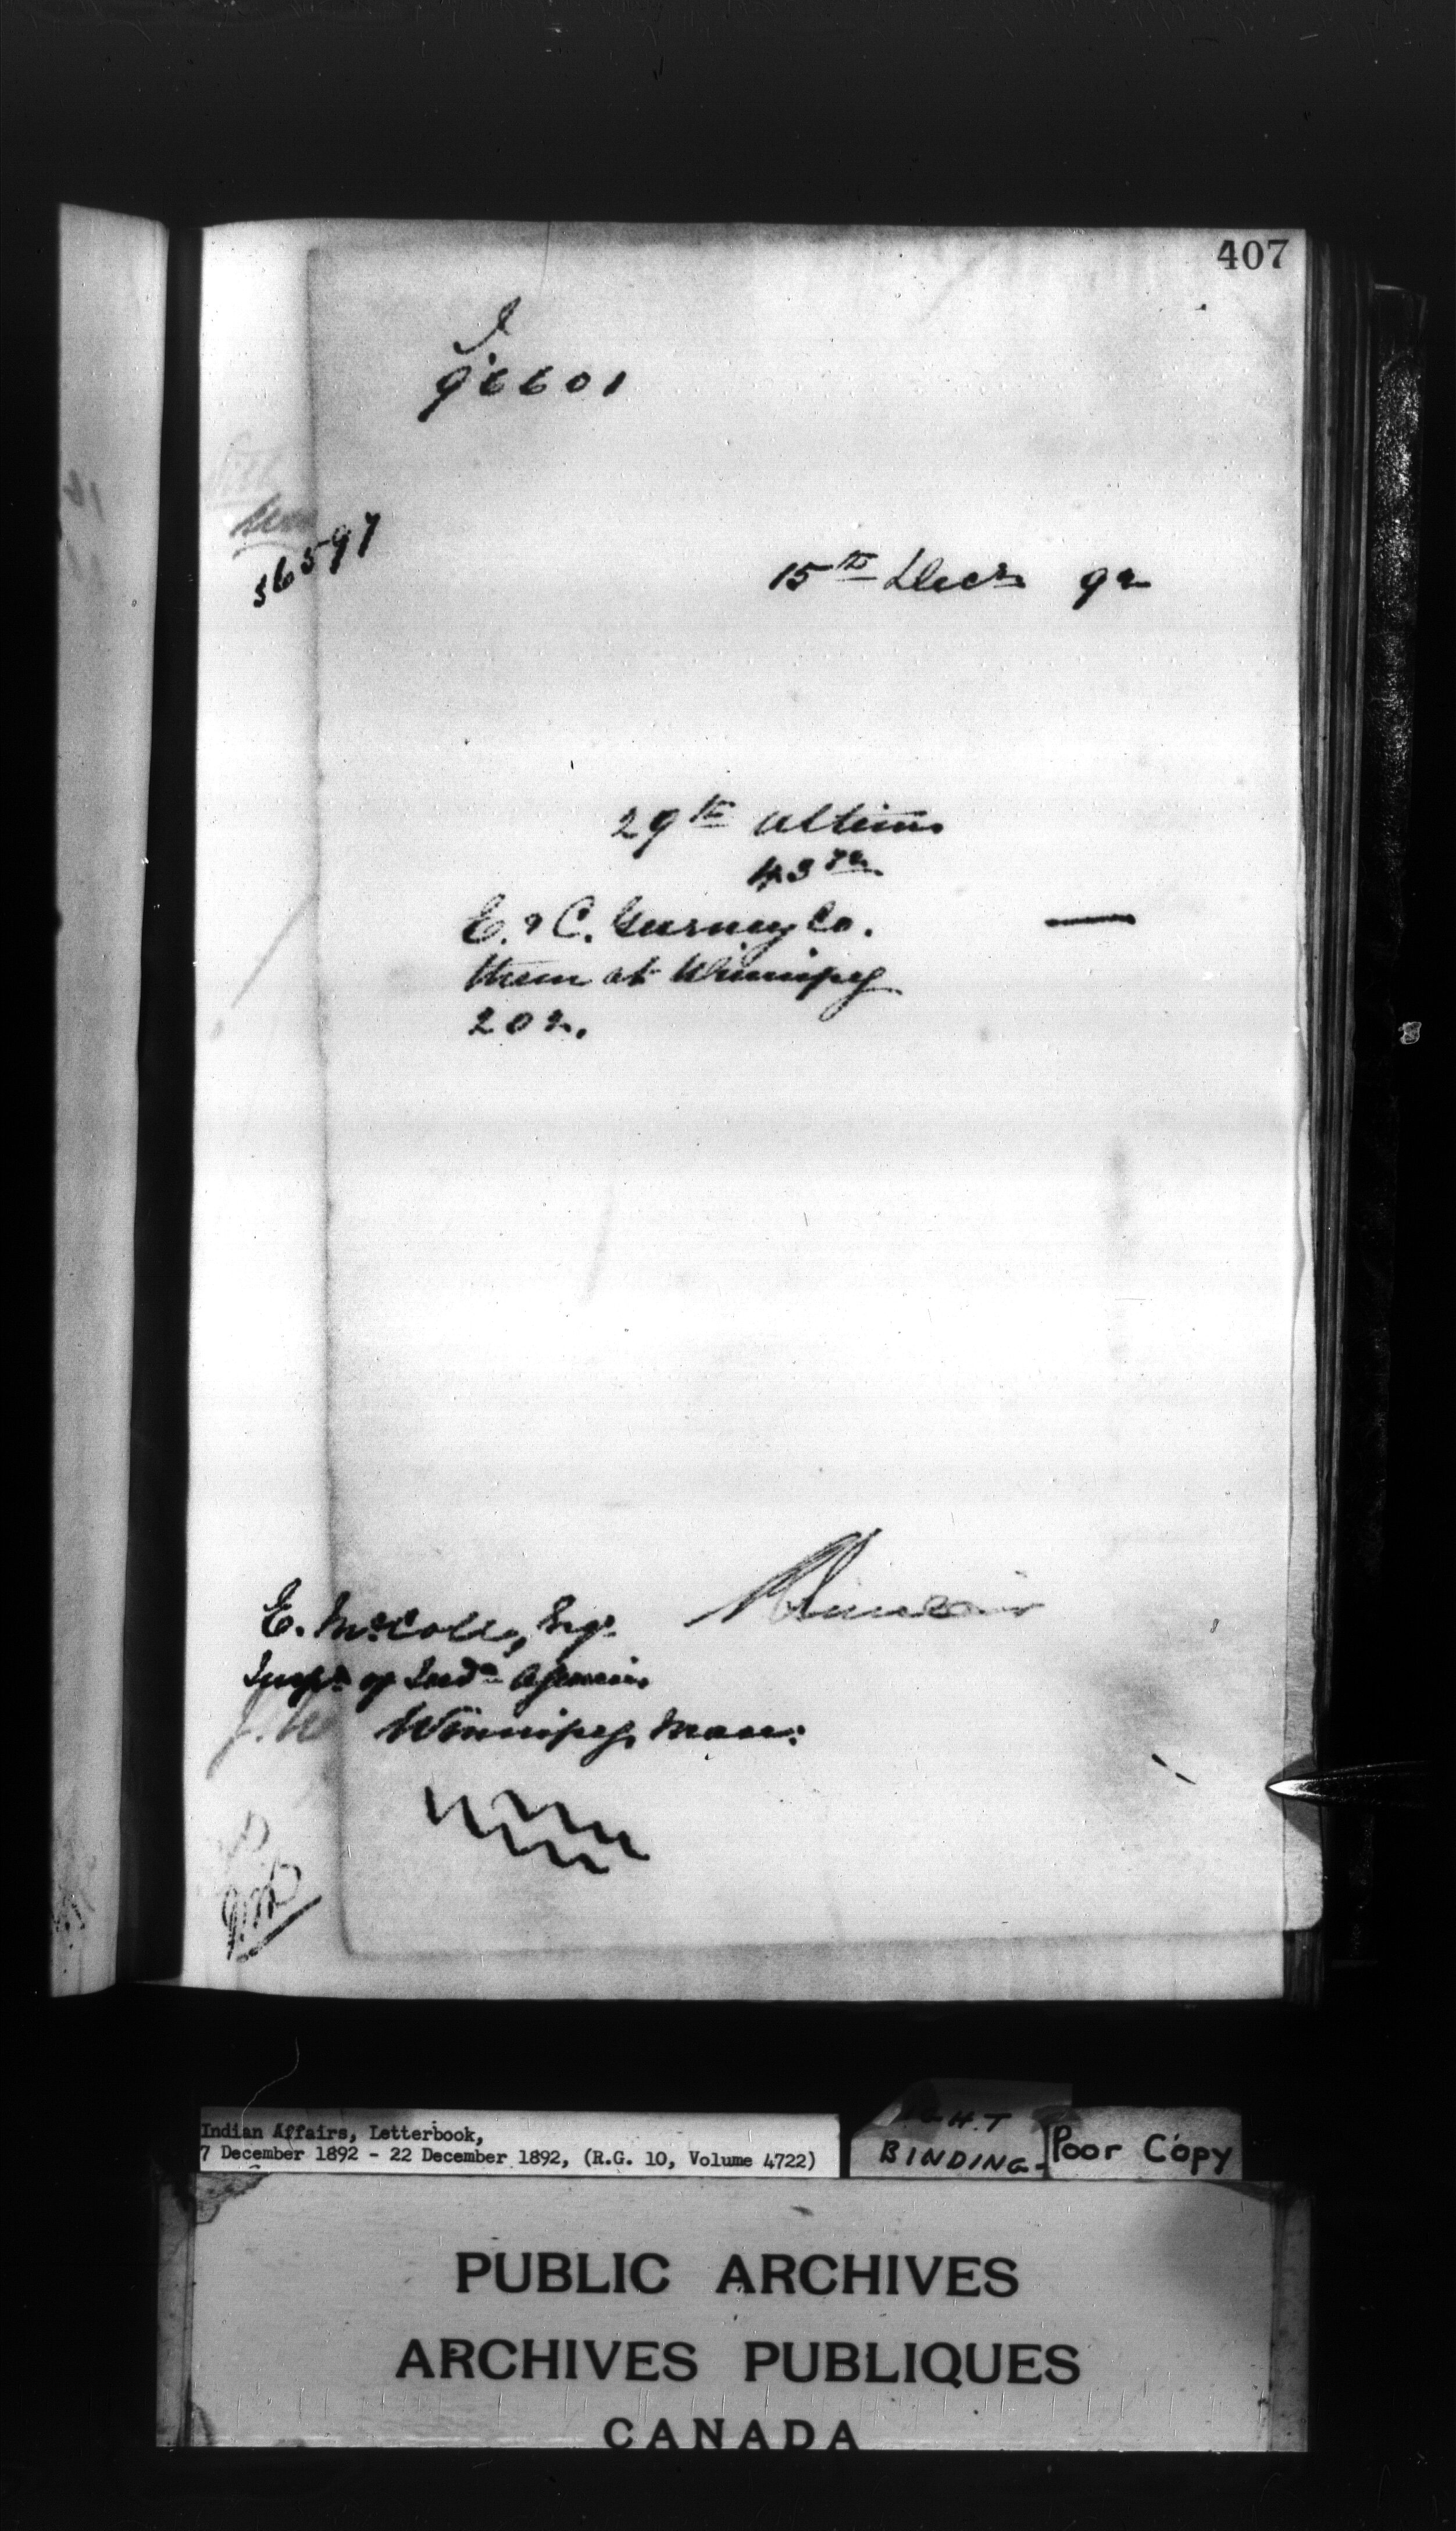 407
96601
36597
15th Decr 92
29th ultimo
43 72
E. & C. Gurney Co. —
them at Winnipeg
202.
E. McColl, Esqr.
Inspr of Indn Agencies
Winnipeg, Man:
Indian Affairs, Letterbook,
7 December 1892 - 22 December 1892, (R.G. 10, Volume 4722)
BINDING-
Poor Copy
PUBLIC ARCHIVES
ARCHIVES PUBLIQUES
CANADA